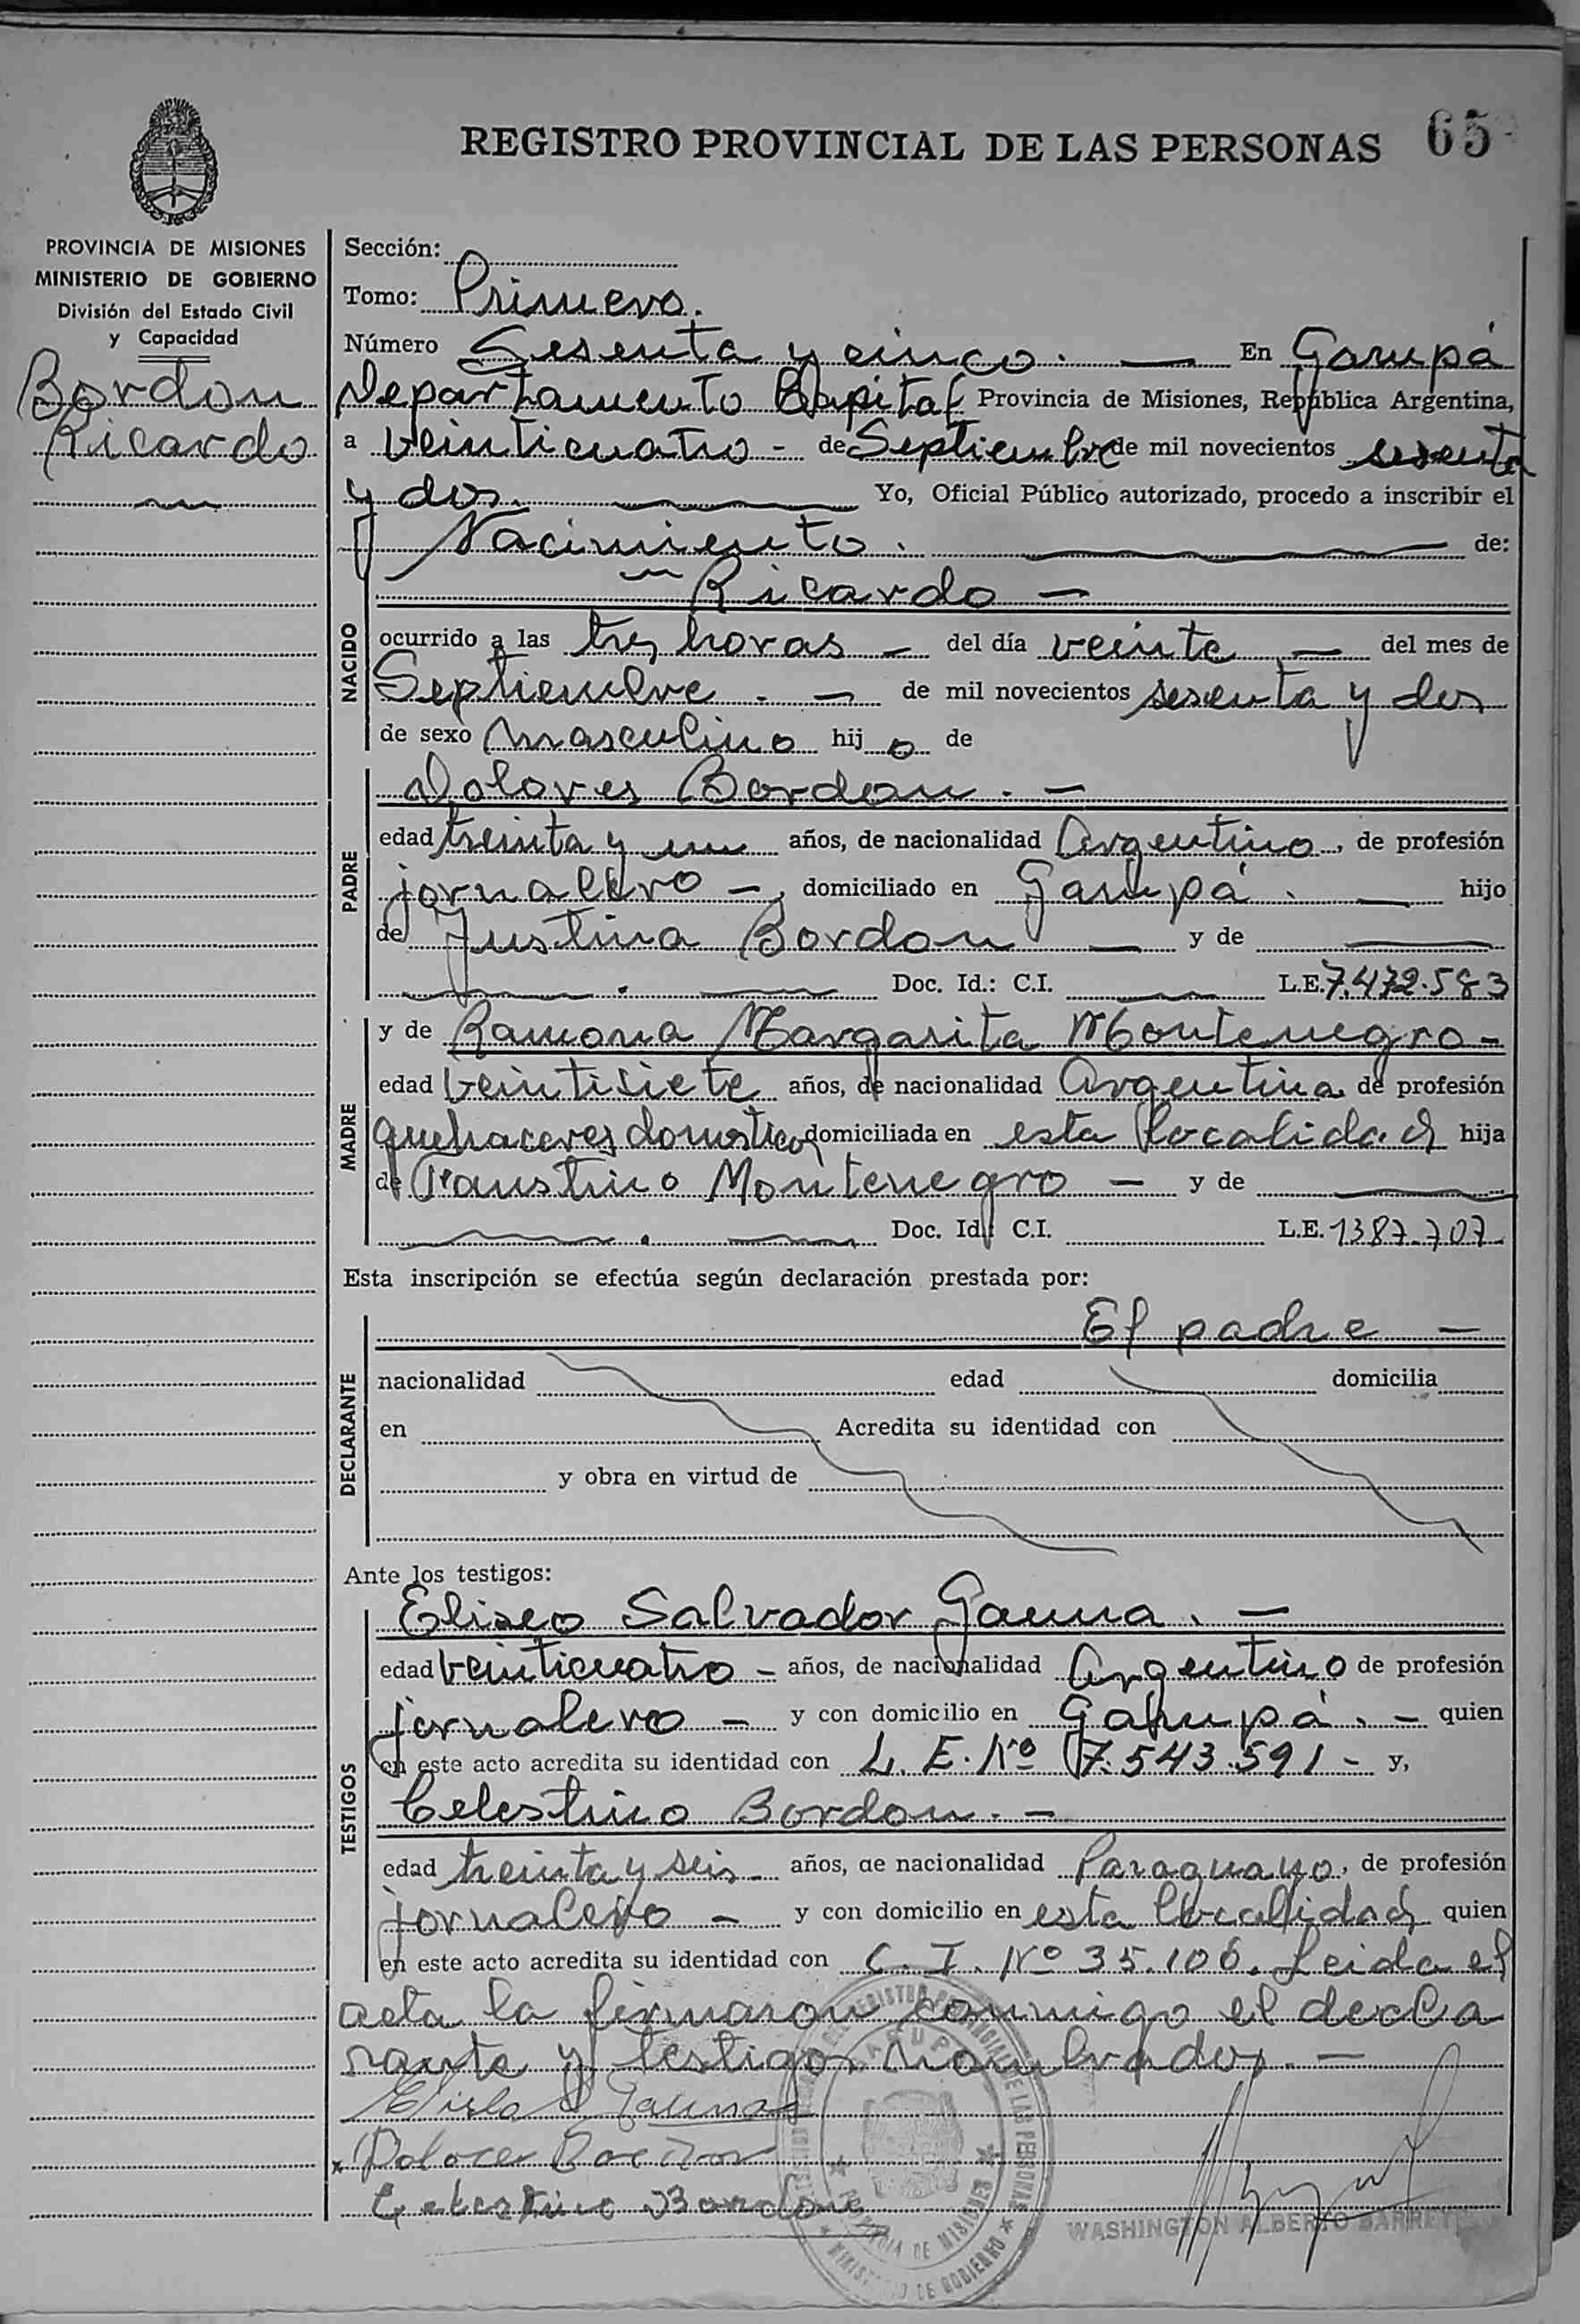 REGISTRO PROVINCIAL DE LAS PERSONAS 65
PROVINCIA DE MISIONES
MINISTERIO DE GOBIERNO
División del Estado Civil
y Capacidad
Bordon
Ricardo
Sección:
Tomo: Primero.
Número Sesenta y cinco. En Garupá
Departamento Capital Provincia de Misiones, República Argentina,
a veinticuatro - de Septiembre de mil novecientos sesenta
y dos. Yo, Oficial Público autorizado, procedo a inscribir el
Nacimiento. de:
NACIDO
Ricardo -
ocurrido a las tres horas - del día veinte - del mes de
Septiembre. - de mil novecientos sesenta y dos
de sexo masculino hij o de
PADRE
Dolores Bordon. -
edad treinta y un años, de nacionalidad Argentino, de profesión
jornalero -, domiciliado en Garupá. - hijo
de Justina Bordon - y de
Doc. Id.: C.I. L.E. 7.472.583
MADRE
y de Ramona Margarita Montenegro -
edad veintisiete años, de nacionalidad Argentina de profesión
quehaceres domesticos domiciliada en esta localidad hija
de Faustino Montenegro - y de
Doc. Id.: C.I. L.E. 1387.707
Esta inscripción se efectúa según declaración prestada por:
DECLARANTE
El padre -
nacionalidad edad domicilia
en Acredita su identidad con
y obra en virtud de
Ante los testigos:
TESTIGOS
Eliseo Salvador Gauna. -
edad veinticuatro - años, de nacionalidad Argentino de profesión
jornalero - y con domicilio en Garupá. - quien
en este acto acredita su identidad con L. E. Nº 7.543.591 - y,
Celestino Bordon. -
edad treinta y seis - años, de nacionalidad Paraguayo, de profesión
jornalero - y con domicilio en esta localidad quien
en este acto acredita su identidad con C. I. Nº 35.106. Leida el
acta la firmaron conmigo el decla
rante y testigos nombrados. -
Gauna
Dolores Bordon
Celestino Bordon
WASHINGTON ALBERTO BARREYRO